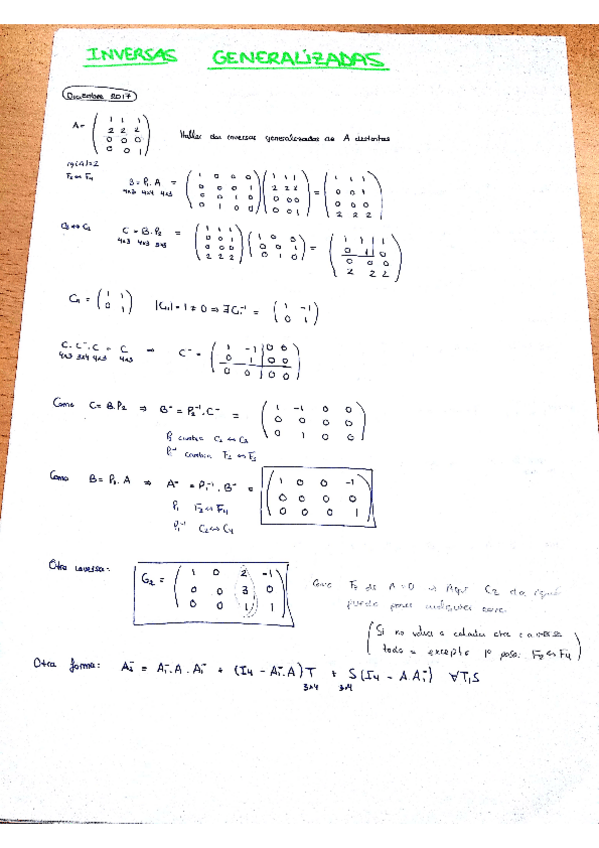 INVERSAS GENERALIZADAS
Diciembre 2017
A= ( 1 1 1 / 2 2 2 / 0 0 0 / 0 0 1 ) Hallar dos inversas generalizadas de A distintas
rg(A)=2
F2 ↔ F4 B = P1 . A = ( 1 0 0 0 / 0 0 0 1 / 0 0 1 0 / 0 1 0 0 ) ( 1 1 1 / 2 2 2 / 0 0 0 / 0 0 1 ) = ( 1 1 1 / 0 0 1 / 0 0 0 / 2 2 2 )
4x3 4x4 4x3
C2 ↔ C3 C = B.P2 = ( 1 1 1 / 0 0 1 / 0 0 0 / 2 2 2 ) ( 1 0 0 / 0 0 1 / 0 1 0 ) = ( 1 1 1 / 0 1 0 / 0 0 0 / 2 2 2 )
4x3 4x3 3x3
C11 = ( 1 1 / 0 1 ) |C11| = 1 ≠ 0 ⇒ ∃ C11⁻¹ = ( 1 -1 / 0 1 )
C . C⁻ . C = C ⇒ C⁻ = ( 1 -1 0 0 / 0 1 0 0 / 0 0 0 0 )
4x3 3x4 4x3 4x3
Como C = B.P2 ⇒ B⁻ = P2⁻¹ . C⁻ = ( 1 -1 0 0 / 0 0 0 0 / 0 1 0 0 )
P2 cambia C2 ↔ C3
P2⁻¹ cambia F2 ↔ F3
Como B = P1 . A ⇒ A⁻ = P1⁻¹ . B⁻ = ( 1 0 0 -1 / 0 0 0 0 / 0 0 0 1 )
P1 F2 ↔ F4
P1⁻¹ C2 ↔ C4
Otra inversa: G2 = ( 1 0 2 -1 / 0 0 3 0 / 0 0 1 1 ) Como F3 de A = 0 ⇒ Aquí C3 da igual
puede poner cualquier cosa.
( Si no volver a calcular otra
todo excepto 1º paso: F2 ↔ F4 )
Otra forma: A2⁻ = A1⁻ . A . A1⁻ + (I4 - A1⁻ . A) T + S (I4 - A . A1⁻) ∀T,S
3x4 3x4